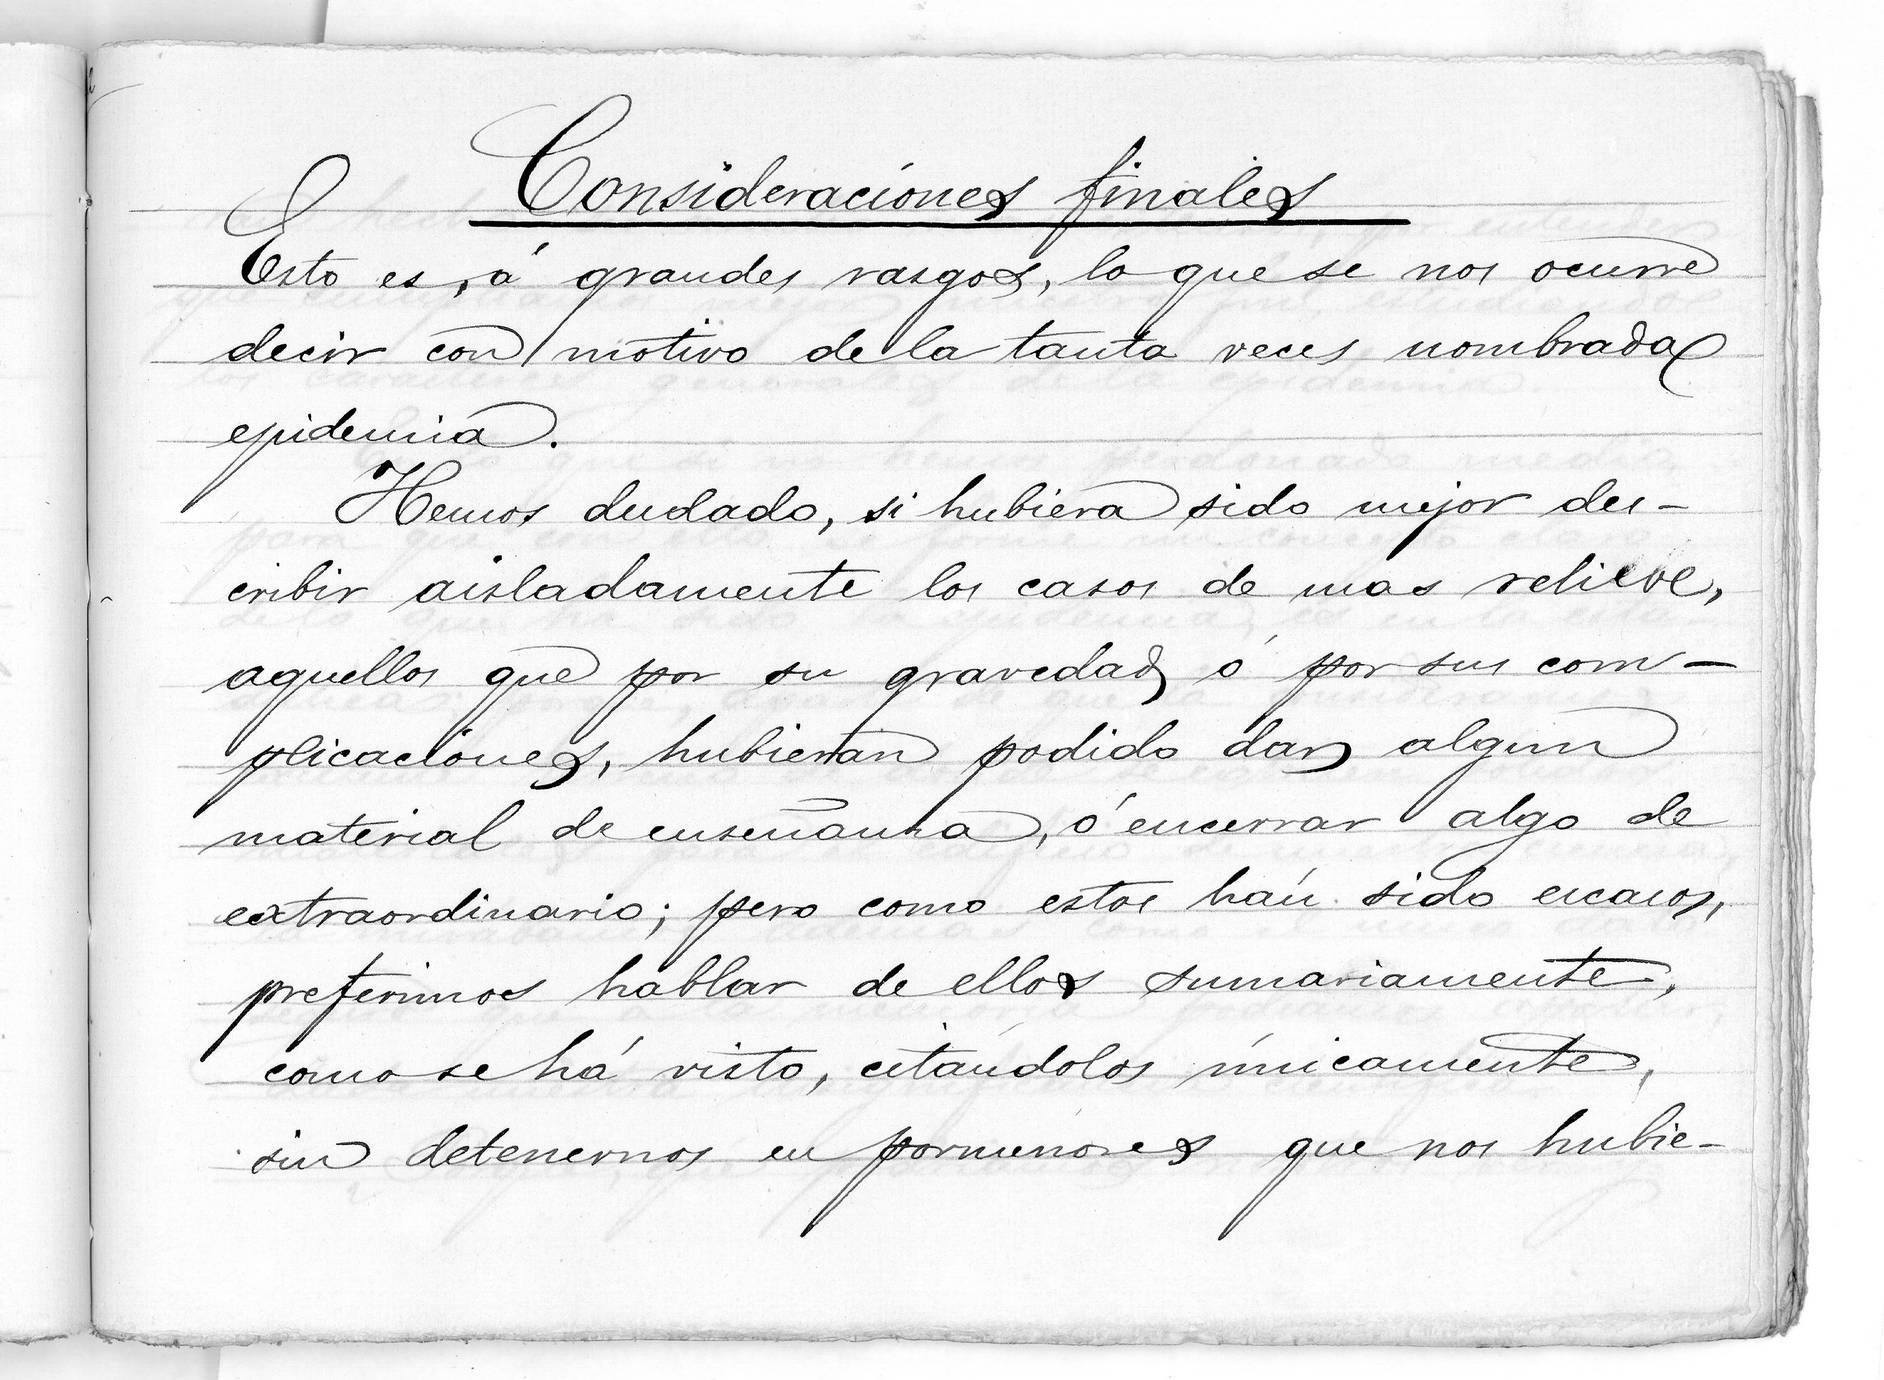 Consideraciones finales
Esto es, á grandes rasgos, lo que se nos ocurre
decir con motivo de la tanta veces nombrada
epidemia.
Hemos dudado, si hubiera sido mejor des-
cribir aisladamente los casos de mas relieve,
aquellos que por su gravedad ó por sus com-
plicaciónes, hubieran podido dar algun
material de enseñanza, ó encerrar algo de
extraordinario; pero como estos hán sido escasos,
preferimos hablar de ellos sumariamente,
como se há visto, citándolos únicamente,
sin detenernos en pormenores que nos hubie-